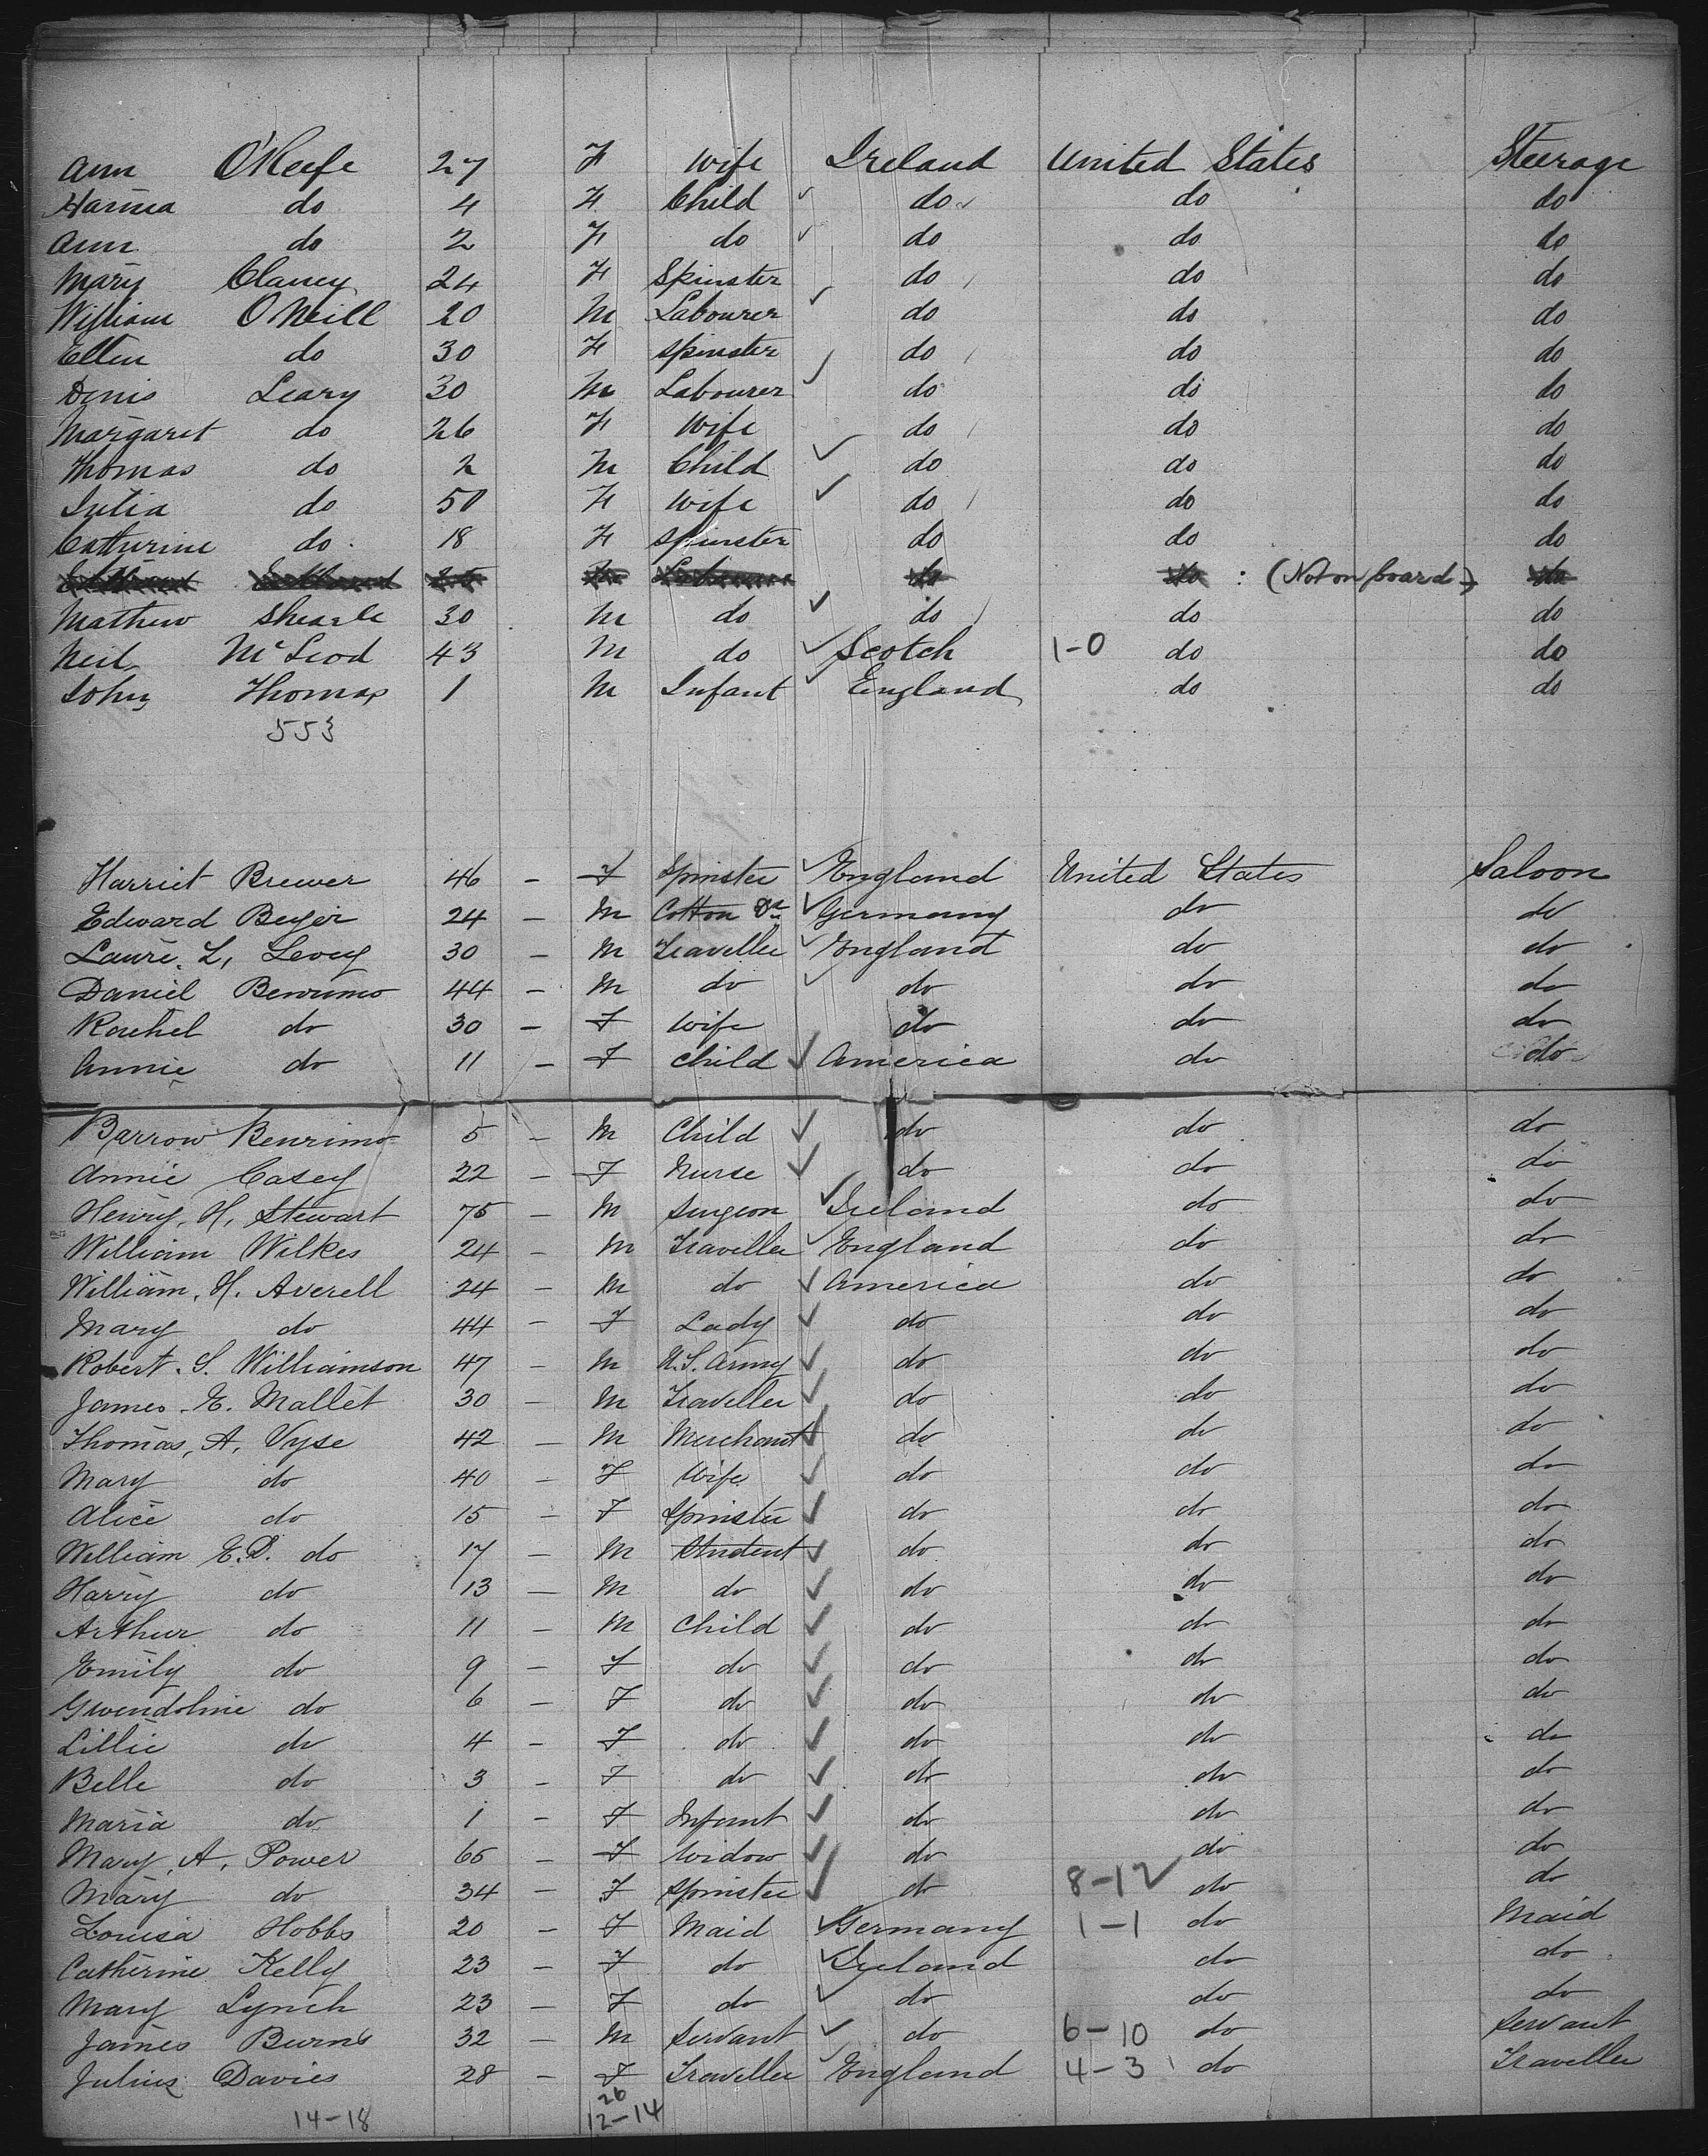 Ann O'Keefe 27 F Wife Ireland United States Steerage
Hanna do 4 F Child do do do
Ann do 2 F do do do do
Mary Clancy 24 F Spinster do do do
William O'Neill 20 M Labourer do do do
Ellen do 30 F Spinster do do do
Denis Leary 30 M Labourer do do do
Margaret do 26 F Wife do do do
Thomas do 2 M Child do do do
Julia do 50 F Wife do do do
Catherine do 18 F Spinster do do do
(Not on board)
Mathew 30 M do do do do
Neil McLeod 43 M do Scotch 1-0 do do
John Thomas 1 M Infant England do do
553
Harriet Brewer 46 - F Spinster England United States Saloon
Edward Beyer 24 - M Cotton Germany do do
L. Levey 30 - M Traveller England do do
Daniel Benrimo 44 - M do do do do
Rachel do 30 - F Wife do do do
Annie do 11 - F Child America do do
Barrow Benrimo 5 - M Child do do do
Annie Casey 22 - F Nurse do do do
Henry, H, Stewart 75 - M Surgeon Ireland do do
William Wilkes 24 - M Traveller England do do
William, H. Averell 24 - M do America do do
Mary do 44 - F Lady do do do
Robert. S. Williamson 47 - M U.S. Army do do do
James. E. Mallet 30 - M Traveller do do do
Thomas, A, Vyse 42 - M Merchant do do do
Mary do 40 - F Wife do do do
Alice do 15 - F Spinster do do do
William E.D. do 17 - M Student do do do
Harry do 13 - M do do do do
Arthur do 11 - M Child do do do
Emily do 9 - F do do do do
Gwendoline do 6 - F do do do do
Lillie do 4 - F do do do do
Belle do 3 - F do do do do
Maria do 1 - F Infant do do do
Mary, A, Power 65 - F Widow do do do
Mary do 34 - F Spinster do 8-12 do do
Louisa Hobbs 20 - F Maid Germany 1-1 do Maid
Catherine Kelly 23 - F do Ireland do do
Mary Lynch 23 - F do do do do
James Burns 32 - M Servant do 6-10 do Servant
Julius Davies 28 - F Traveller England 4-3 do Traveller
26
14-18 12-14